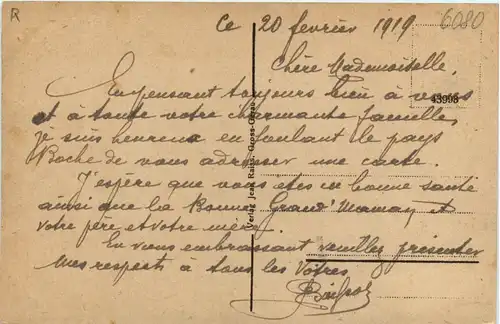 R
Ce 20 fevrier 1919
6080
Chère Mademoiselle,
En pensant toujours bien à vous
43998
et à toute votre charmante famille,
je suis heureux en foulant le pays
Boche de vous adresser une carte.
J'espère que vous etes en bonne santé
ainsi que la Bonne Grand'Maman et
votre père et votre mère.
En vous embrassant veuillez présenter
Mes respects à tous les Vôtres
Verlag Jean